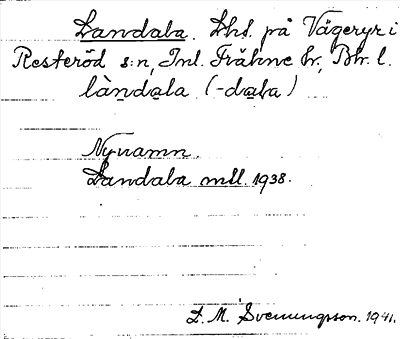 Landala. Lhs. på Vägeryr i
Resteröd s:n, Inl. Fräkne hr, Bhr. l.
làndala (-dala)
Nynamn.
Landala mtl. 1938.
D. M. Svenungsson. 1941.